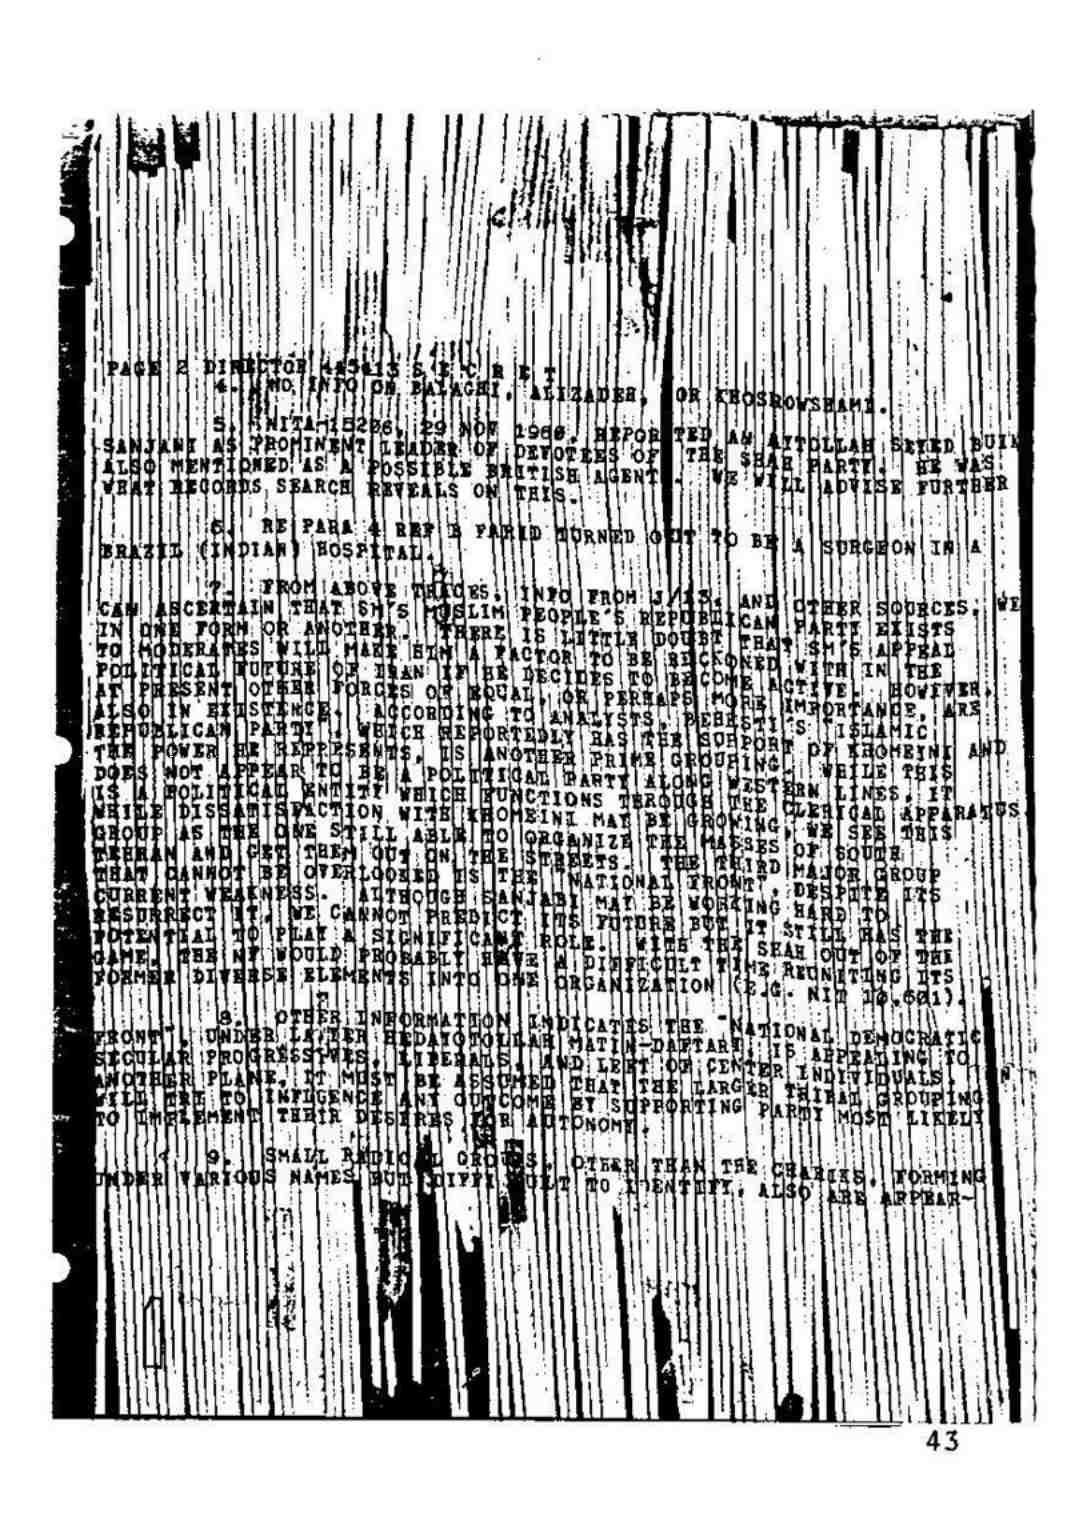 PAGE 2 DIRECTOR 445413 S E C R E T
4. NO INFO ON BALAGHI, ALIZADEH, OR KHOSROWSHAHI.
5. NITA-15206, 29 NOV 1960, REPORTED AN AYTOLLAH SEYED
SANJANI AS PROMINENT LEADER OF DEVOTEES OF THE SHAH PARTY. HE WAS
ALSO MENTIONED AS A POSSIBLE BRITISH AGENT. WE WILL ADVISE FURTHER
WHAT RECORDS SEARCH REVEALS ON THIS.
6. RE PARA 4 REF B FARID TURNED OUT TO BE A SURGEON IN A
BRAZIL (INDIAN) HOSPITAL.
7. FROM ABOVE TRACES, INFO FROM J/13, AND OTHER SOURCES, WE
CAN ASCERTAIN THAT SM'S MUSLIM PEOPLE'S REPUBLICAN PARTY EXISTS
IN ONE FORM OR ANOTHER. THERE IS LITTLE DOUBT THAT SM'S APPEAL
TO MODERATES WILL MAKE HIM A FACTOR TO BE RECKONED WITH IN THE
POLITICAL FUTURE OF IRAN IF HE DECIDES TO BECOME ACTIVE. HOWEVER,
AT PRESENT OTHER FORCES OF EQUAL, OR PERHAPS MORE IMPORTANCE, ARE
ALSO IN EXISTENCE. ACCORDING TO ANALYSTS, BEHESTI'S "ISLAMIC
REPUBLICAN PARTY", WHICH REPORTEDLY HAS THE SUPPORT OF KHOMEINI AND
THE POWER HE REPRESENTS, IS ANOTHER PRIME GROUPING. WHILE THIS
DOES NOT APPEAR TO BE A POLITICAL PARTY ALONG WESTERN LINES, IT
IS A POLITICAL ENTITY WHICH FUNCTIONS THROUGH THE CLERICAL APPARATUS.
WHILE DISSATISFACTION WITH KHOMEINI MAY BE GROWING, WE SEE THIS
GROUP AS THE ONE STILL ABLE TO ORGANIZE THE MASSES OF SOUTH
TEHRAN AND GET THEM OUT ON THE STREETS. THE THIRD MAJOR GROUP
THAT CANNOT BE OVERLOOKED IS THE "NATIONAL FRONT", DESPITE ITS
CURRENT WEAKNESS. ALTHOUGH SANJABI MAY BE WORKING HARD TO
RESURRECT IT, WE CANNOT PREDICT ITS FUTURE BUT IT STILL HAS THE
POTENTIAL TO PLAY A SIGNIFICANT ROLE. WITH THE SHAH OUT OF THE
GAME, THE NF WOULD PROBABLY HAVE A DIFFICULT TIME REUNITING ITS
FORMER DIVERSE ELEMENTS INTO ONE ORGANIZATION (E.G. NIT 10,601).
8. OTHER INFORMATION INDICATES THE "NATIONAL DEMOCRATIC
FRONT", UNDER LAWYER HEDAYOTOLLAH MATIN-DAFTARI IS APPEALING TO
SECULAR PROGRESSIVES, LIBERALS, AND LEFT OF CENTER INDIVIDUALS. ON
ANOTHER PLANE, IT MUST BE ASSUMED THAT THE LARGER TRIBAL GROUPING
WILL TRY TO INFLUENCE ANY OUTCOME BY SUPPORTING PARTY MOST LIKELY
TO IMPLEMENT THEIR DESIRES FOR AUTONOMY.
9. SMALL RADICAL GROUPS, OTHER THAN THE CHARIKS, FORMING
UNDER VARIOUS NAMES BUT DIFFICULT TO IDENTIFY, ALSO ARE APPEAR-
43